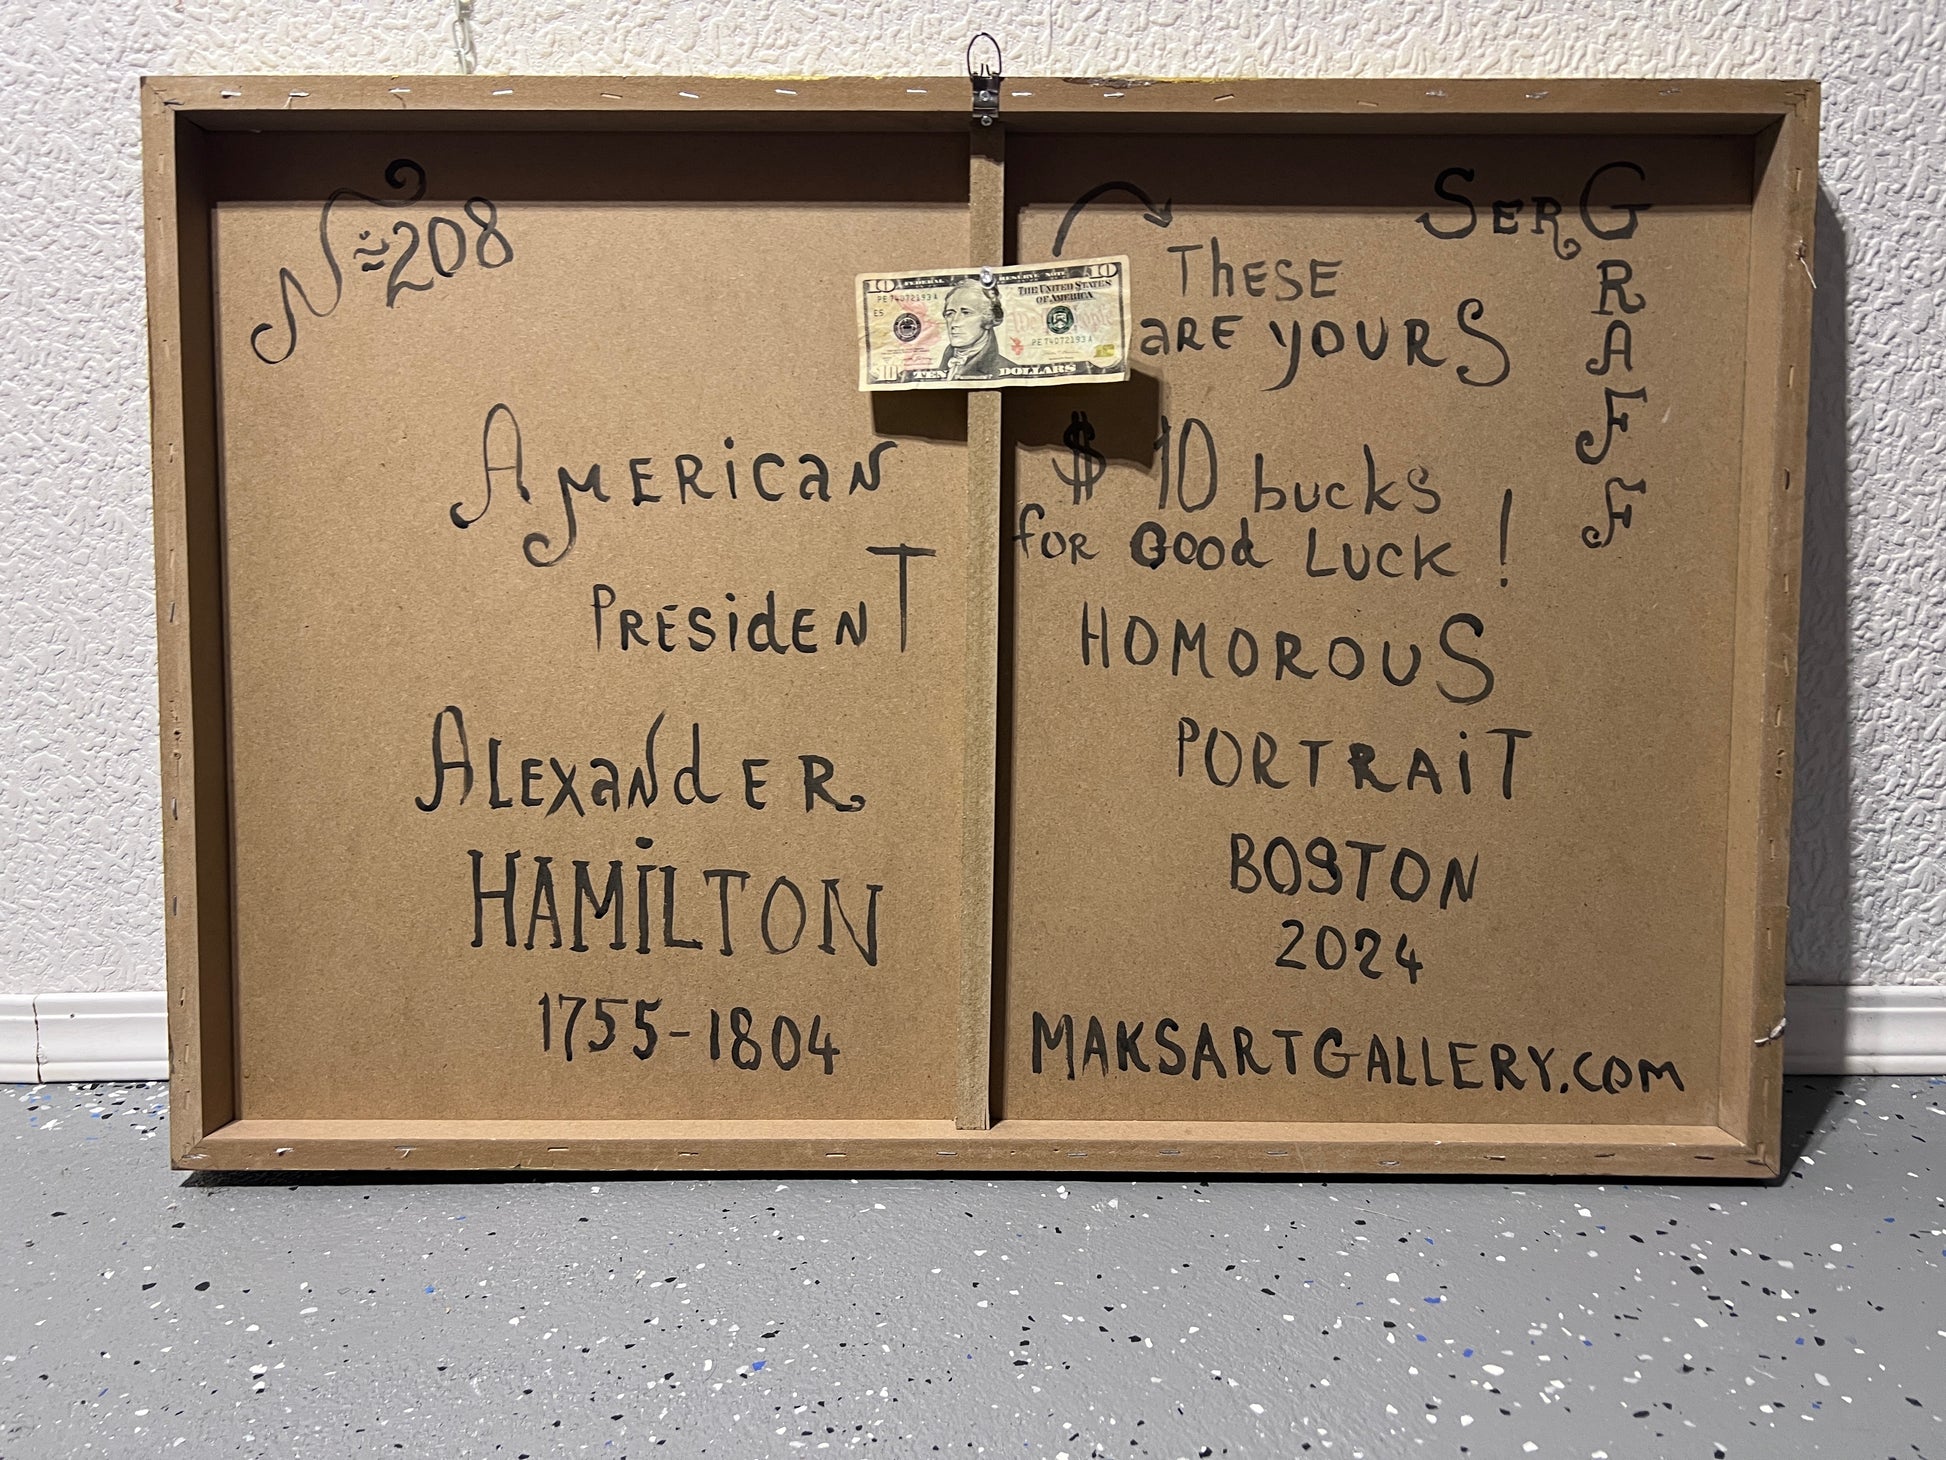 N≈208
AMERicaN
PRESidENT
ALEXaNdER
HAMiLTON
1755-1804
ThESE
aRE YOURS
$10 bucks
foR Good Luck!
HOMOROUS
PORTRAiT
BOSTON
2024
MAKSARTGALLERY.COM
SERGRAFF
10 FEDERAL RESERVE NOTE 10
PE 74072193 A
THE UNITED STATES
OF AMERICA
E5
PE 74072193 A
10 TEN DOLLARS